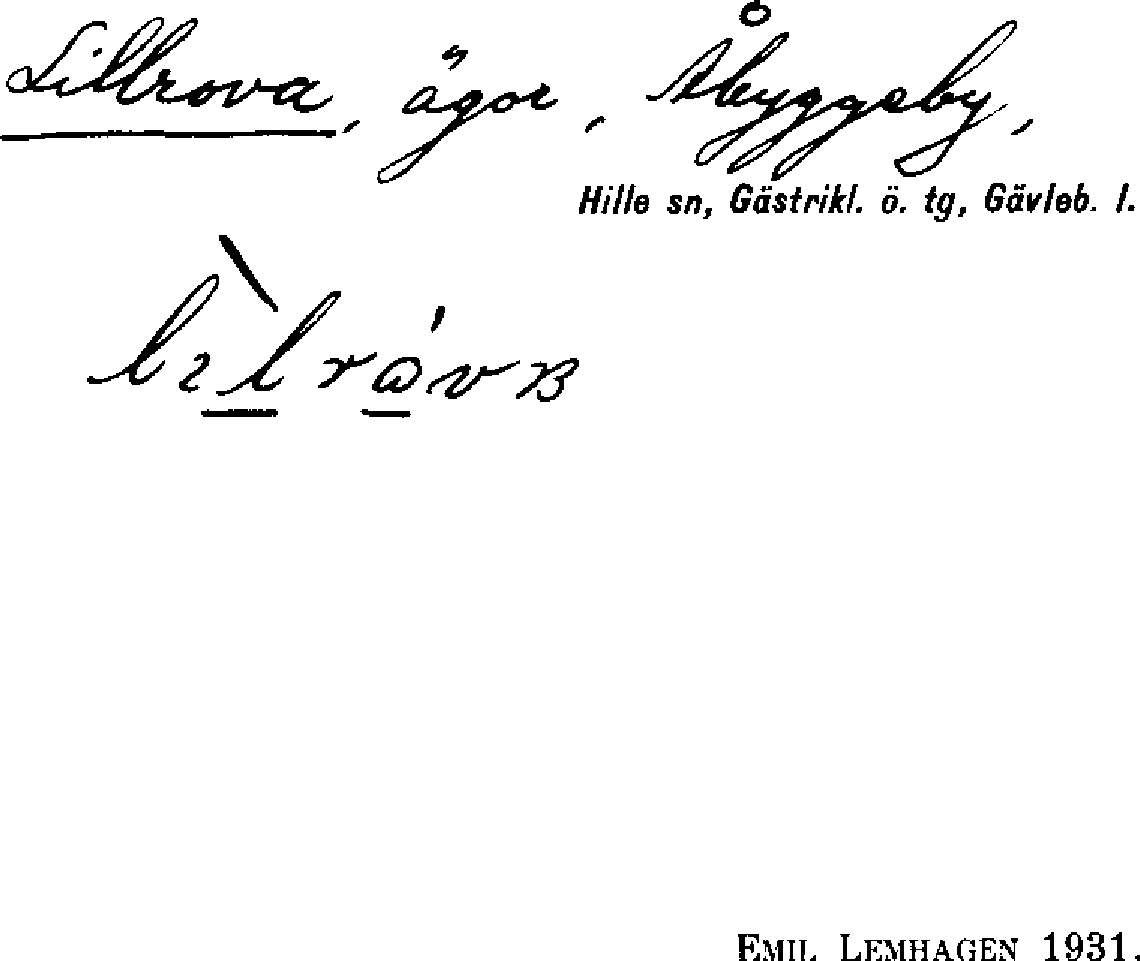 Lillrova, ägor, Åbyggeby,
Hille sn, Gästrikl. ö. tg, Gävleb. l.
EMIL LEMHAGEN 1931.